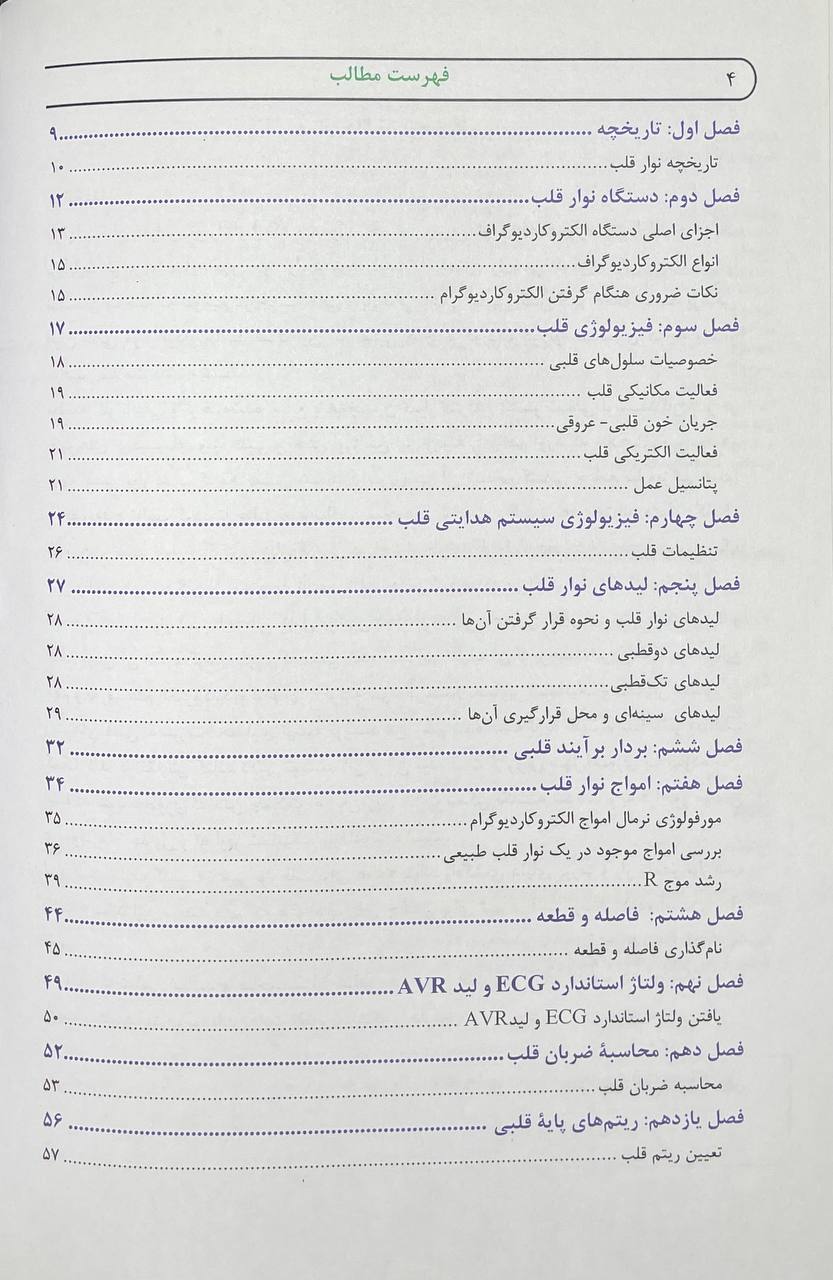 ۴
فهرست مطالب
فصل اول: تاریخچه ........ ۹
تاریخچه نوار قلب ........ ۱۰
فصل دوم: دستگاه نوار قلب ........ ۱۲
اجزای اصلی دستگاه الکتروکاردیوگراف ........ ۱۳
انواع الکتروکاردیوگراف ........ ۱۵
نکات ضروری هنگام گرفتن الکتروکاردیوگرام ........ ۱۵
فصل سوم: فیزیولوژی قلب ........ ۱۷
خصوصیات سلول‌های قلبی ........ ۱۸
فعالیت مکانیکی قلب ........ ۱۹
جریان خون قلبی- عروقی ........ ۱۹
فعالیت الکتریکی قلب ........ ۲۱
پتانسیل عمل ........ ۲۱
فصل چهارم: فیزیولوژی سیستم هدایتی قلب ........ ۲۴
تنظیمات قلب ........ ۲۶
فصل پنجم: لیدهای نوار قلب ........ ۲۷
لیدهای نوار قلب و نحوه قرار گرفتن آن‌ها ........ ۲۸
لیدهای دوقطبی ........ ۲۸
لیدهای تک‌قطبی ........ ۲۸
لیدهای سینه‌ای و محل قرارگیری آن‌ها ........ ۲۹
فصل ششم: بردار برآیند قلبی ........ ۳۲
فصل هفتم: امواج نوار قلب ........ ۳۴
مورفولوژی نرمال امواج الکتروکاردیوگرام ........ ۳۵
بررسی امواج موجود در یک نوار قلب طبیعی ........ ۳۶
رشد موج R ........ ۳۹
فصل هشتم: فاصله و قطعه ........ ۴۴
نام‌گذاری فاصله و قطعه ........ ۴۵
فصل نهم: ولتاژ استاندارد ECG و لید AVR ........ ۴۹
یافتن ولتاژ استاندارد ECG و لیدAVR ........ ۵۰
فصل دهم: محاسبۀ ضربان قلب ........ ۵۲
محاسبه ضربان قلب ........ ۵۳
فصل یازدهم: ریتم‌های پایۀ قلبی ........ ۵۶
تعیین ریتم قلب ........ ۵۷